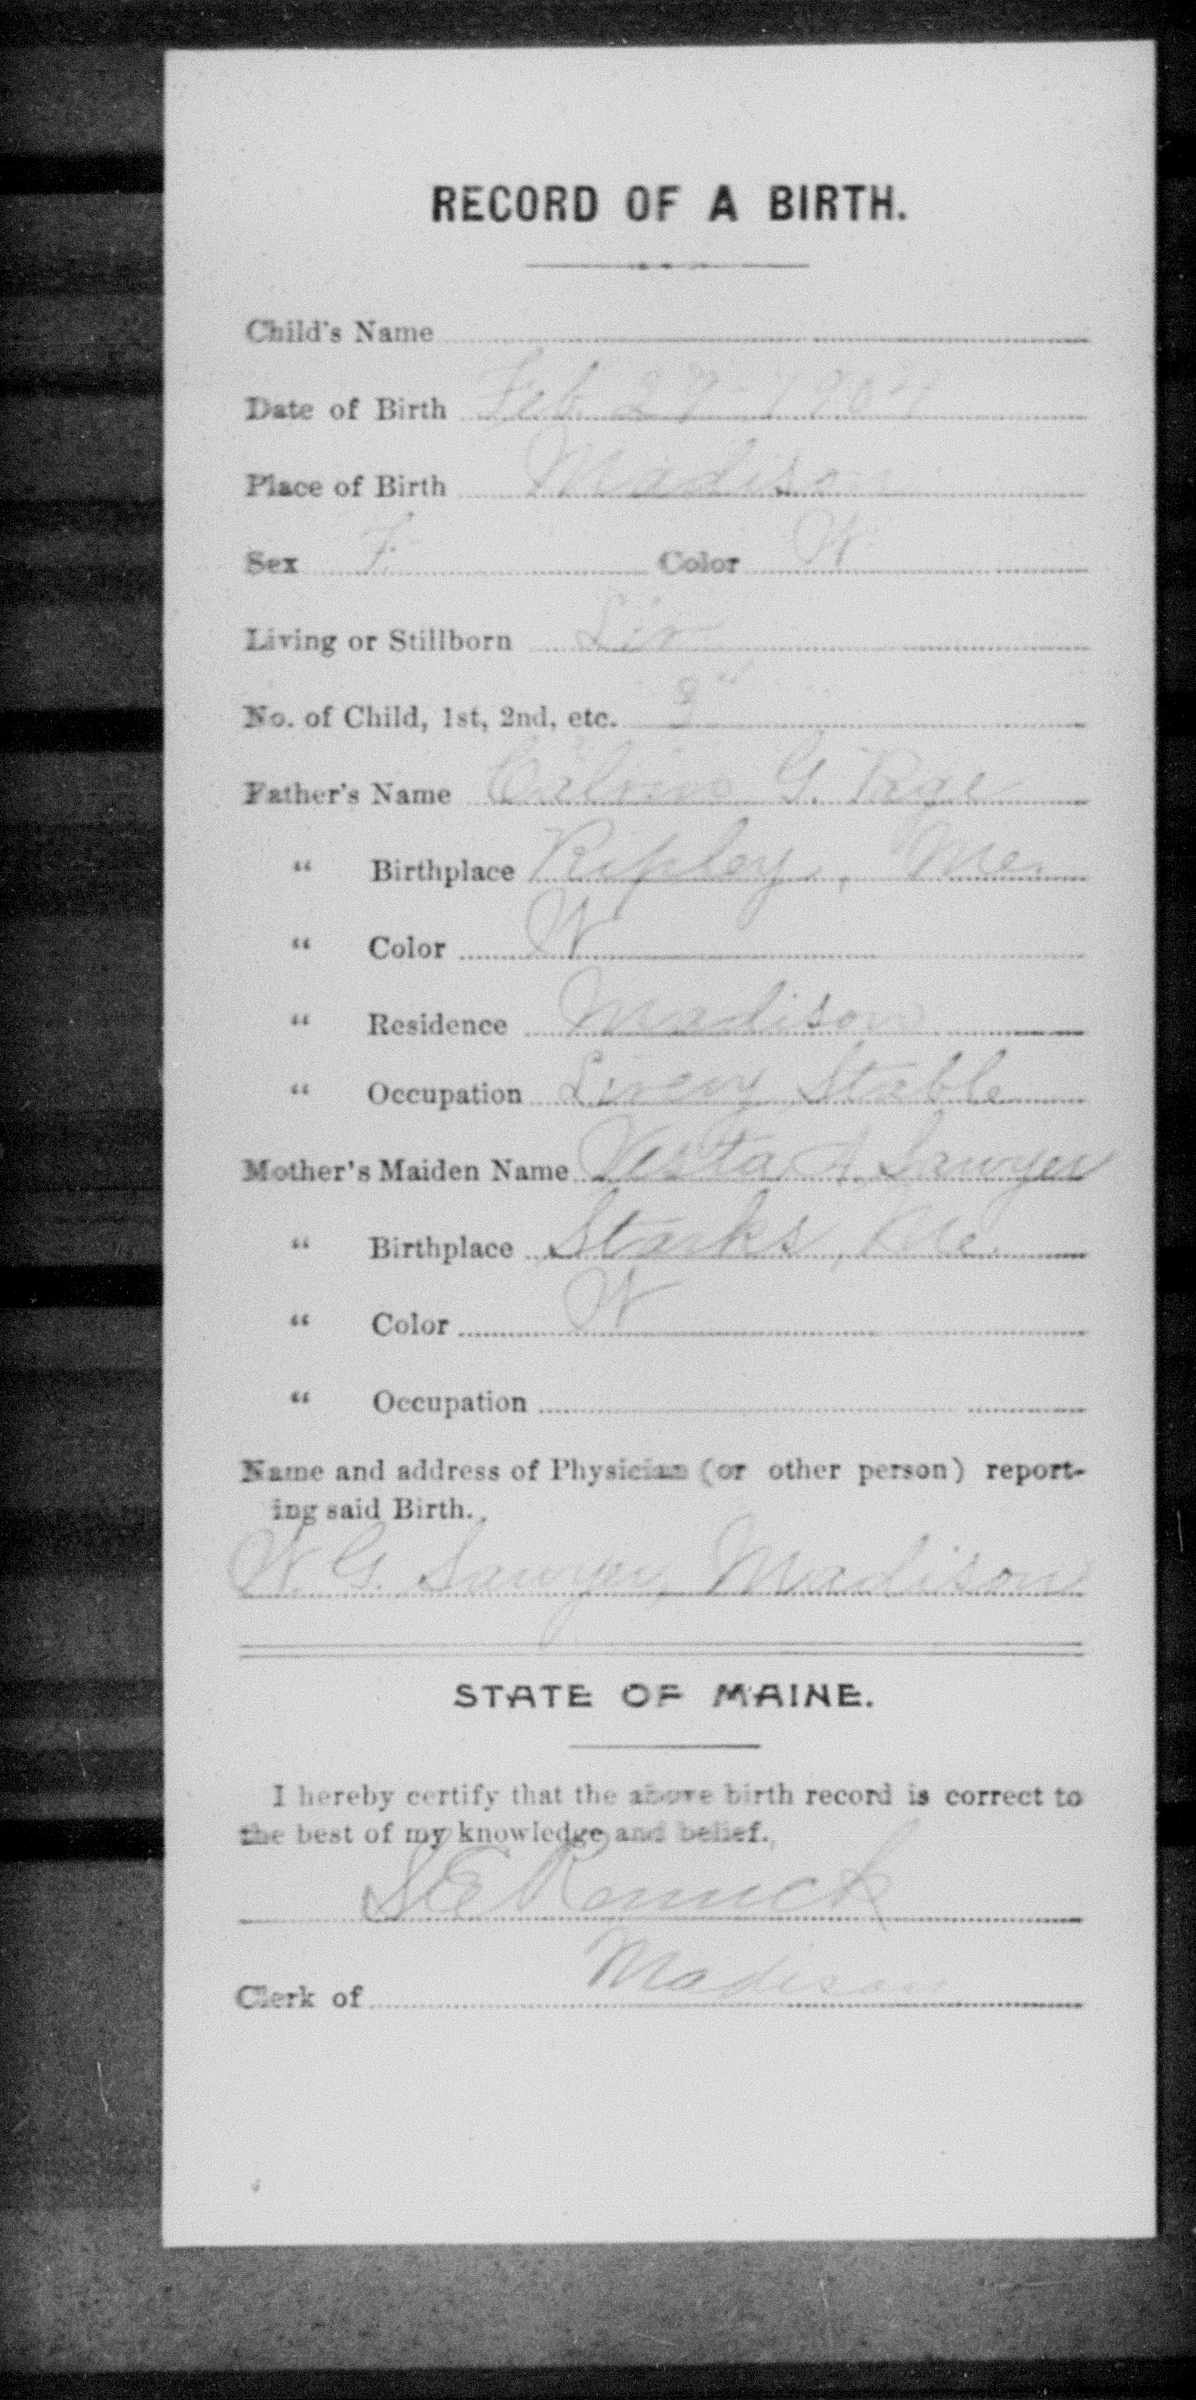 RECORD OF A BIRTH.
Child's Name
Date of Birth Feb. 27 1904
Place of Birth Madison
Sex F. Color W
Living or Stillborn Liv
No. of Child, 1st, 2nd, etc.
Father's Name Calvin G. Page
" Birthplace Ripley, Me.
" Color W
" Residence Madison
" Occupation Livery Stable
Mother's Maiden Name Vesta A. Sawyer
" Birthplace Starks, Me.
" Color W
" Occupation
Name and address of Physician (or other person) report-
ing said Birth.
W. G. Sawyer, Madison
STATE OF MAINE.
I hereby certify that the above birth record is correct to
the best of my knowledge and belief.
S E Remick
Clerk of Madison